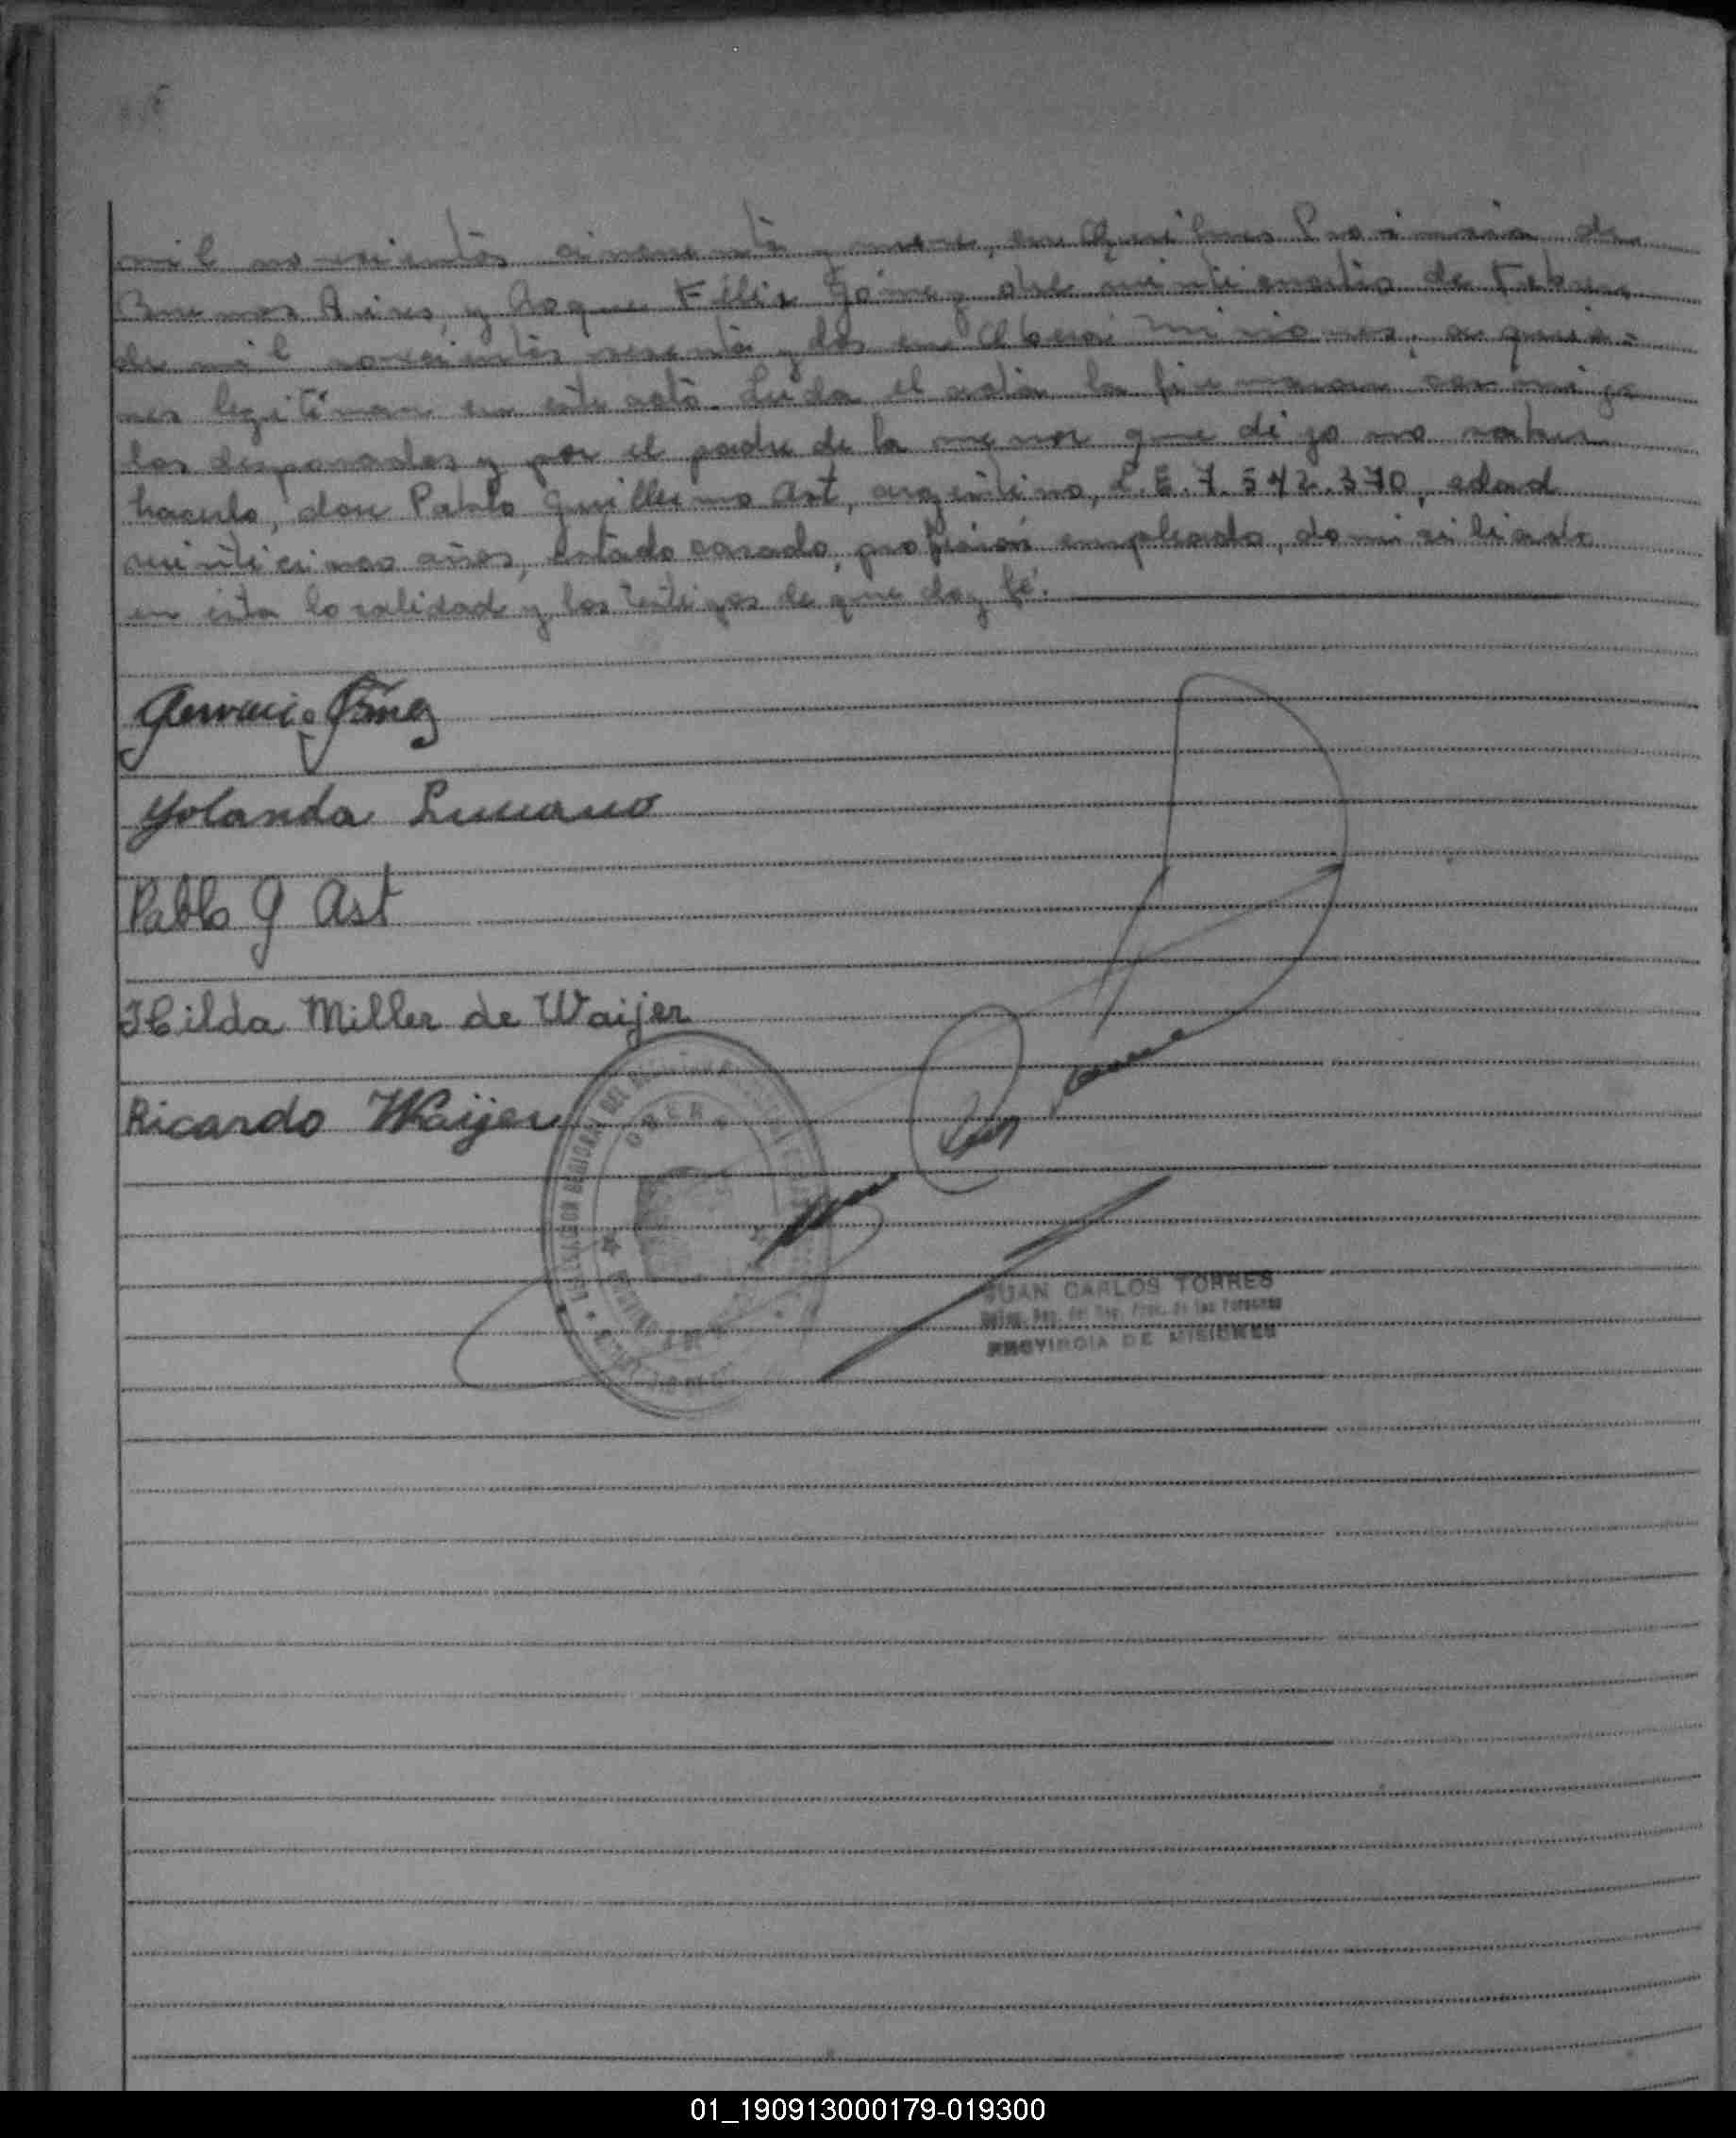 mil novecientos cincuenta y nueve, en Quilmes Provincia de
Buenos Aires, y Roque Félix Gómez del veinticuatro de Febrero
de mil novecientos sesenta y dos en Oberá Misiones, a quie-
nes legitiman en este acto. Leida el acta la firmaron conmigo
los desposados y por el padre de la menor que dijo no saber
hacerlo, don Pablo Guillermo Ast, argentino, L.E. 7.542.370, edad
veinticinco años, estado casado, profesión empleado, domiciliado
en ésta localidad y los testigos de que doy fé.
Gervacio Gómez
Yolanda Luciano
Pablo G Ast
Hilda Miller de Waijer
Ricardo Waijer
OBERA
JUAN CARLOS TORRES
Reg. del Reg. Prov. de las Personas
PROVINCIA DE MISIONES
01_190913000179-019300